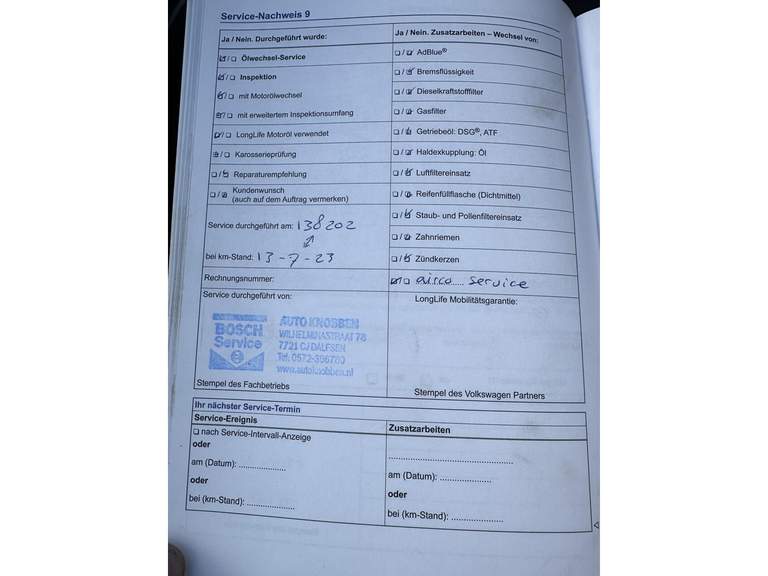 Service-Nachweis 9
Ja / Nein. Durchgeführt wurde:
☑/☐ Ölwechsel-Service
☑/☐ Inspektion
☑/☐ mit Motorölwechsel
☑/☐ mit erweitertem Inspektionsumfang
☑/☐ LongLife Motoröl verwendet
☑/☐ Karosserieprüfung
☐/☑ Reparaturempfehlung
☐/☑ Kundenwunsch
(auch auf dem Auftrag vermerken)
Service durchgeführt am: 138202
bei km-Stand: 13-7-23
Rechnungsnummer:
Service durchgeführt von:
BOSCH
Service
AUTO KNOBBEN
WILHELMINASTRAAT 78
7721 CJ DALFSEN
Tel. 0572-366780
www.autoknobben.nl
Stempel des Fachbetriebs
Ja / Nein. Zusatzarbeiten – Wechsel von:
☐/☑ AdBlue®
☐/☑ Bremsflüssigkeit
☐/☑ Dieselkraftstofffilter
☐/☑ Gasfilter
☐/☑ Getriebeöl: DSG®, ATF
☐/☑ Haldexkupplung: Öl
☐/☑ Luftfiltereinsatz
☐/☑ Reifenfüllflasche (Dichtmittel)
☐/☑ Staub- und Pollenfiltereinsatz
☐/☑ Zahnriemen
☐/☑ Zündkerzen
☑/☐ airco..... service
LongLife Mobilitätsgarantie:
Stempel des Volkswagen Partners
Ihr nächster Service-Termin
Service-Ereignis
☐ nach Service-Intervall-Anzeige
oder
am (Datum): ...................
oder
bei (km-Stand): ...................
Zusatzarbeiten
..................................................
am (Datum): ....................
oder
bei (km-Stand): ....................